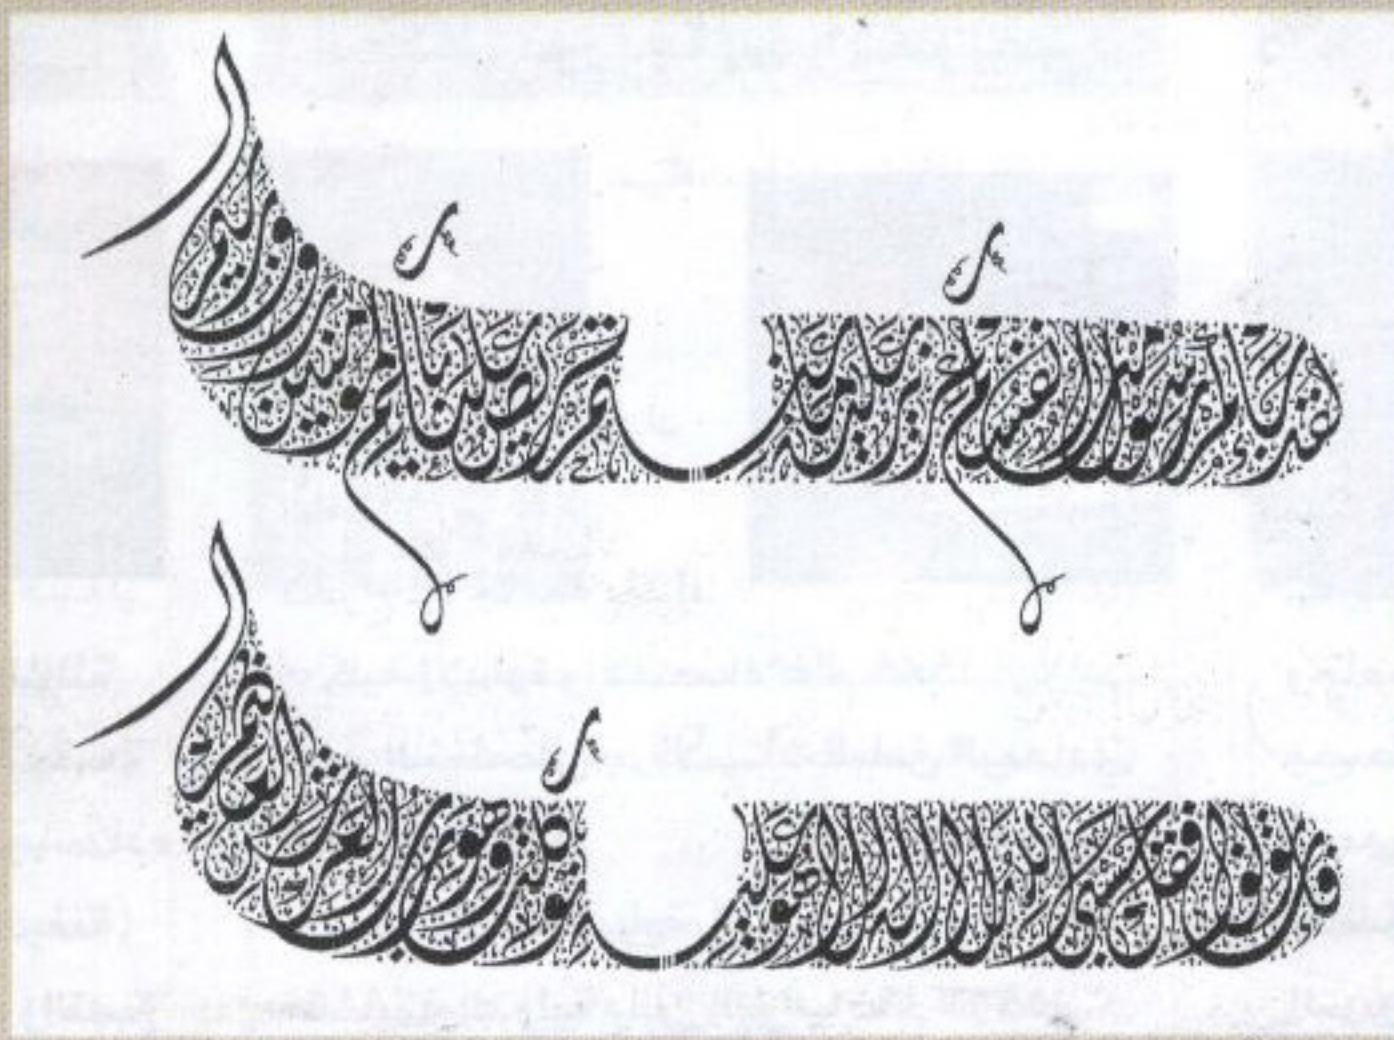 لقد جاءكم رسول من أنفسكم عزيز عليه ما عنتم حريص عليكم بالمؤمنين رءوف رحيم
فإن تولوا فقل حسبي الله لا إله إلا هو عليه توكلت وهو رب العرش العظيم